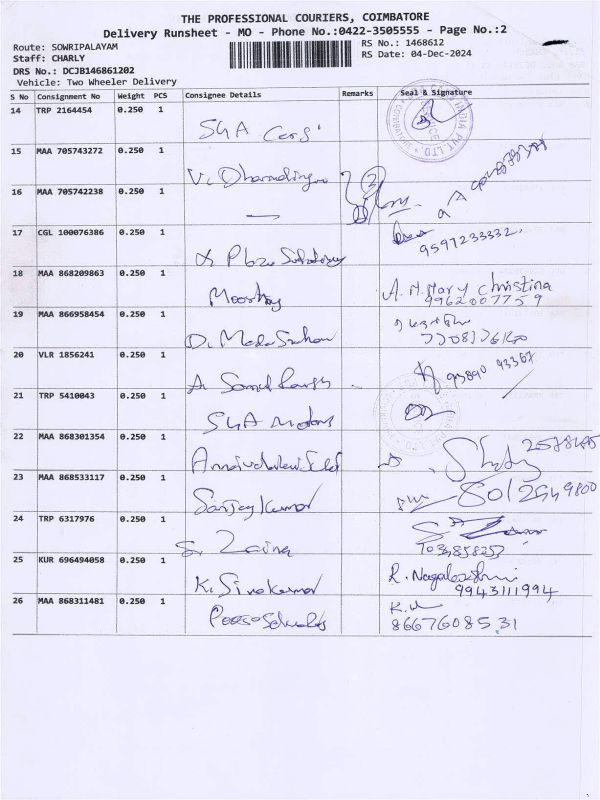 THE PROFESSIONAL COURIERS, COIMBATORE
Delivery Runsheet - MO - Phone No.:0422-3505555 - Page No.:2
Route: SOWRIPALAYAM RS No.: 1468612
Staff: CHARLY RS Date: 04-Dec-2024
DRS No.: DCJB146861202
Vehicle: Two Wheeler Delivery
S No Consignment No Weight PCS Consignee Details Remarks Seal & Signature
14 TRP 2164454 0.250 1
SGA Cars
15 MAA 705743272 0.250 1
V.
16 MAA 705742238 0.250 1
17 CGL 100076386 0.250 1
9597233332
18 MAA 868209863 0.250 1
Moorthy A. M. Mary Christina
9962007759
19 MAA 866958454 0.250 1
D.
20 VLR 1856241 0.250 1
A. 93890 43367
21 TRP 5410043 0.250 1
SGA Motors
22 MAA 868301354 0.250 1
23 MAA 868533117 0.250 1
Sanjay Kumar 8012549800
24 TRP 6317976 0.250 1
S. Zaina
25 KUR 696494058 0.250 1
K. Sivakumar R. Nagalakshmi
9943111994
26 MAA 868311481 0.250 1
8667608531